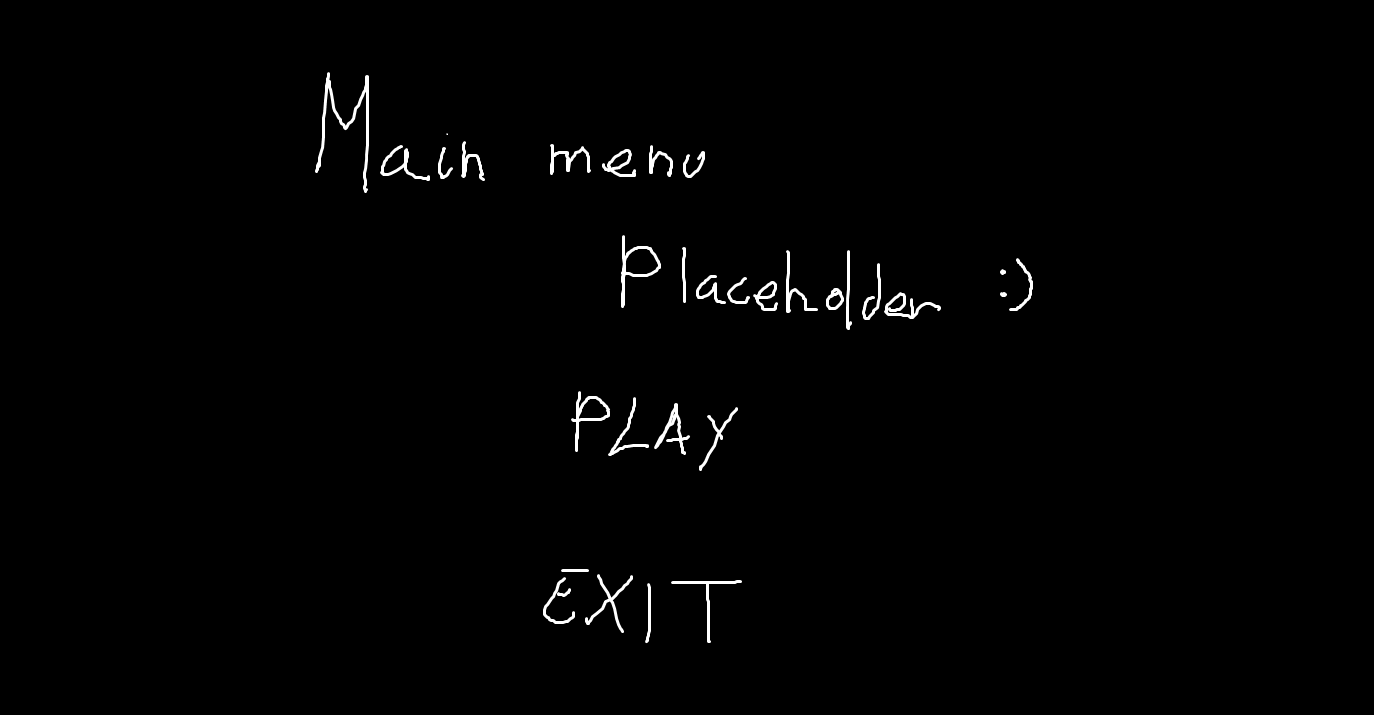 Main menu
Placeholder :)
PLAY
EXIT